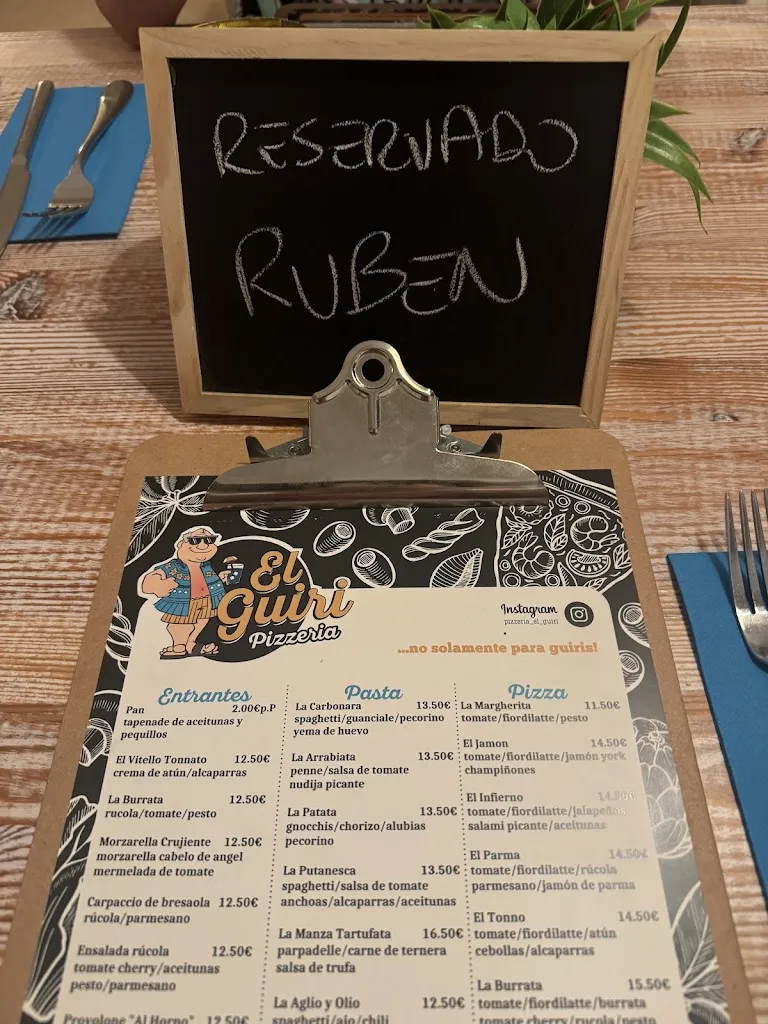 RESERVADO
RUBEN
El
Guiri
Pizzeria
Instagram
pizzeria_el_guiri
...no solamente para guiris!
Entrantes
Pan 2.00€p.P
tapenade de aceitunas y
pequillos
El Vitello Tonnato 12.50€
crema de atún/alcaparras
La Burrata 12.50€
rucola/tomate/pesto
Morzarella Crujiente 12.50€
morzarella cabelo de angel
mermelada de tomate
Carpaccio de bresaola 12.50€
rúcola/parmesano
Ensalada rúcola 12.50€
tomate cherry/aceitunas
pesto/parmesano
Provolone "Al Horno" 12.50€
Pasta
La Carbonara 13.50€
spaghetti/guanciale/pecorino
yema de huevo
La Arrabiata 13.50€
penne/salsa de tomate
nudija picante
La Patata 13.50€
gnocchis/chorizo/alubias
pecorino
La Putanesca 13.50€
spaghetti/salsa de tomate
anchoas/alcaparras/aceitunas
La Manza Tartufata 16.50€
parpadelle/carne de ternera
salsa de trufa
La Aglio y Olio 12.50€
spaghetti/ajo/chili
Pizza
La Margherita 11.50€
tomate/fiordilatte/pesto
El Jamon 14.50€
tomate/fiordilatte/jamón york
champiñones
El Infierno 14.50€
tomate/fiordilatte/jalapeños
salami picante/aceitunas
El Parma 14.50€
tomate/fiordilatte/rúcola
parmesano/jamón de parma
El Tonno 14.50€
tomate/fiordilatte/atún
cebollas/alcaparras
La Burrata 15.50€
tomate/fiordilatte/burrata
tomate cherry/rucola/pesto